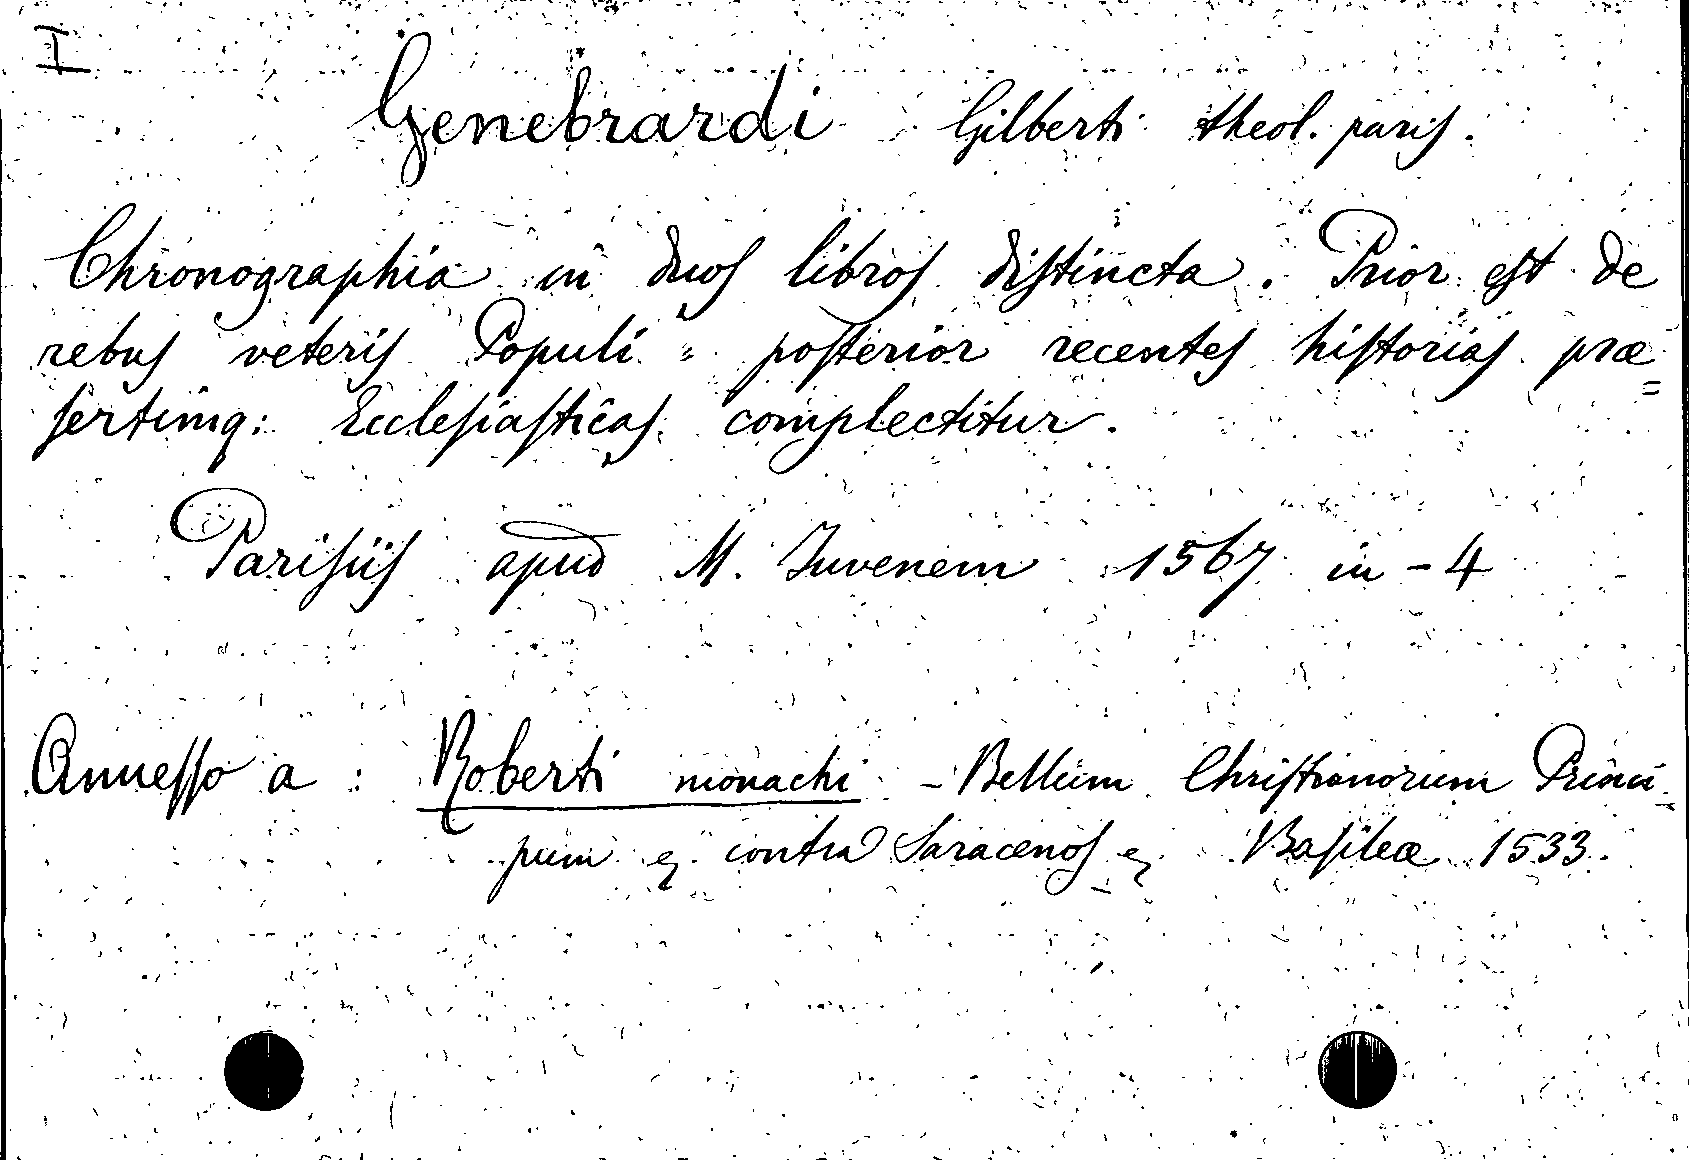 I
Genebrardi Gilberti theol. paris.
Chronographia in duos libros distincta. Prior est de
rebus veteris Populi = posterior recentes historias præ=
sertimq: Ecclesiasticas complectitur.
Parisiis apud M. Iuvenem 1567 in-4
Annesso a: Roberti monachi - Bellum Christianorum Princi-
pum & contra Saracenos & Basileæ 1533.